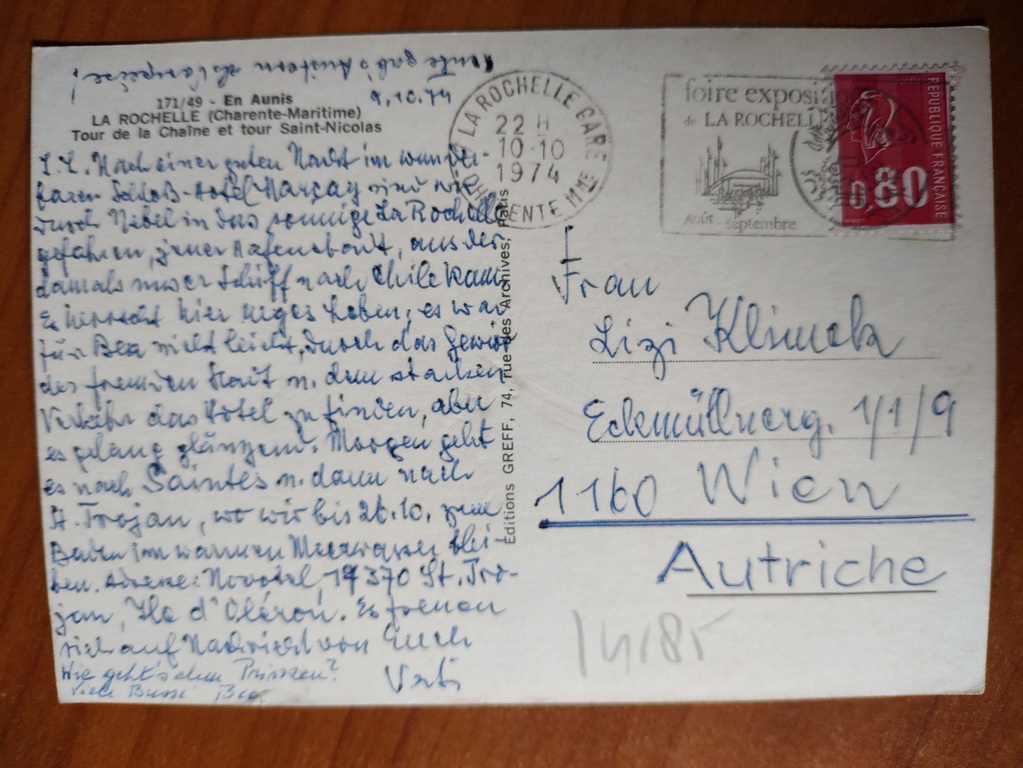 Heute gab's Austern als Vorspeise!
9.10.74
171/49 - En Aunis
LA ROCHELLE (Charente-Maritime)
Tour de la Chaîne et tour Saint-Nicolas
L.L. Nach einer guten Nacht im wunder-
baren Schloß-Hotel Marçay sind wir
durch Nebel in das sonnige La Rochelle
gefahren, jener Hafenstadt, aus der
damals unser Schiff nach Chile kam.
Es herrscht hier reges Leben; es war
für Bea nicht leicht, durch das Gewirr
der fremden Stadt u. dem starken
Verkehr das Hotel zu finden, aber
es gelang glänzend. Morgen geht
es nach Saintes u. dann nach
St. Trojan, wo wir bis 26.10. zum
Baden im warmen Meerwasser blei-
ben. Adresse: Novotel, 17 370 St. Tro-
jan, Ile d'Oléron. Es freuen
sich auf Nachricht von Euch
Wie geht's dem Prinzen?
Viele Bussi Bea
Editions GREFF, 74, rue des Archives, Paris
LA ROCHELLE GARE
22 H
10-10
1974
CHARENTE MME
foire exposi
de LA ROCHELLE
Août - septembre
REPUBLIQUE FRANÇAISE
0.80
Frau
Lizi Klimek
Eckmüllnerg. 1/1/9
1160 Wien
Autriche